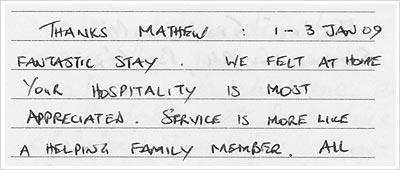 THANKS MATHEW : 1 - 3 JAN 09
FANTASTIC STAY . WE FELT AT HOME
YOUR HOSPITALITY IS MOST
APPRECIATED. SERVICE IS MORE LIKE
A HELPING FAMILY MEMBER. ALL